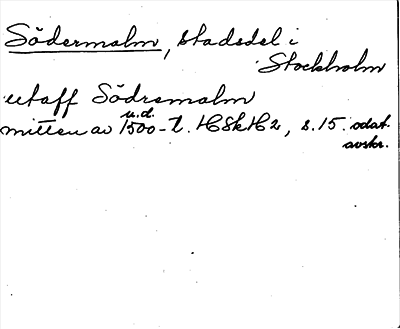 Södermalm, stadsdel i
Stockholm
utaff Södremalm
u.d.
mitten av 1500-t. HSkH2, s. 15. odat.
avskr.